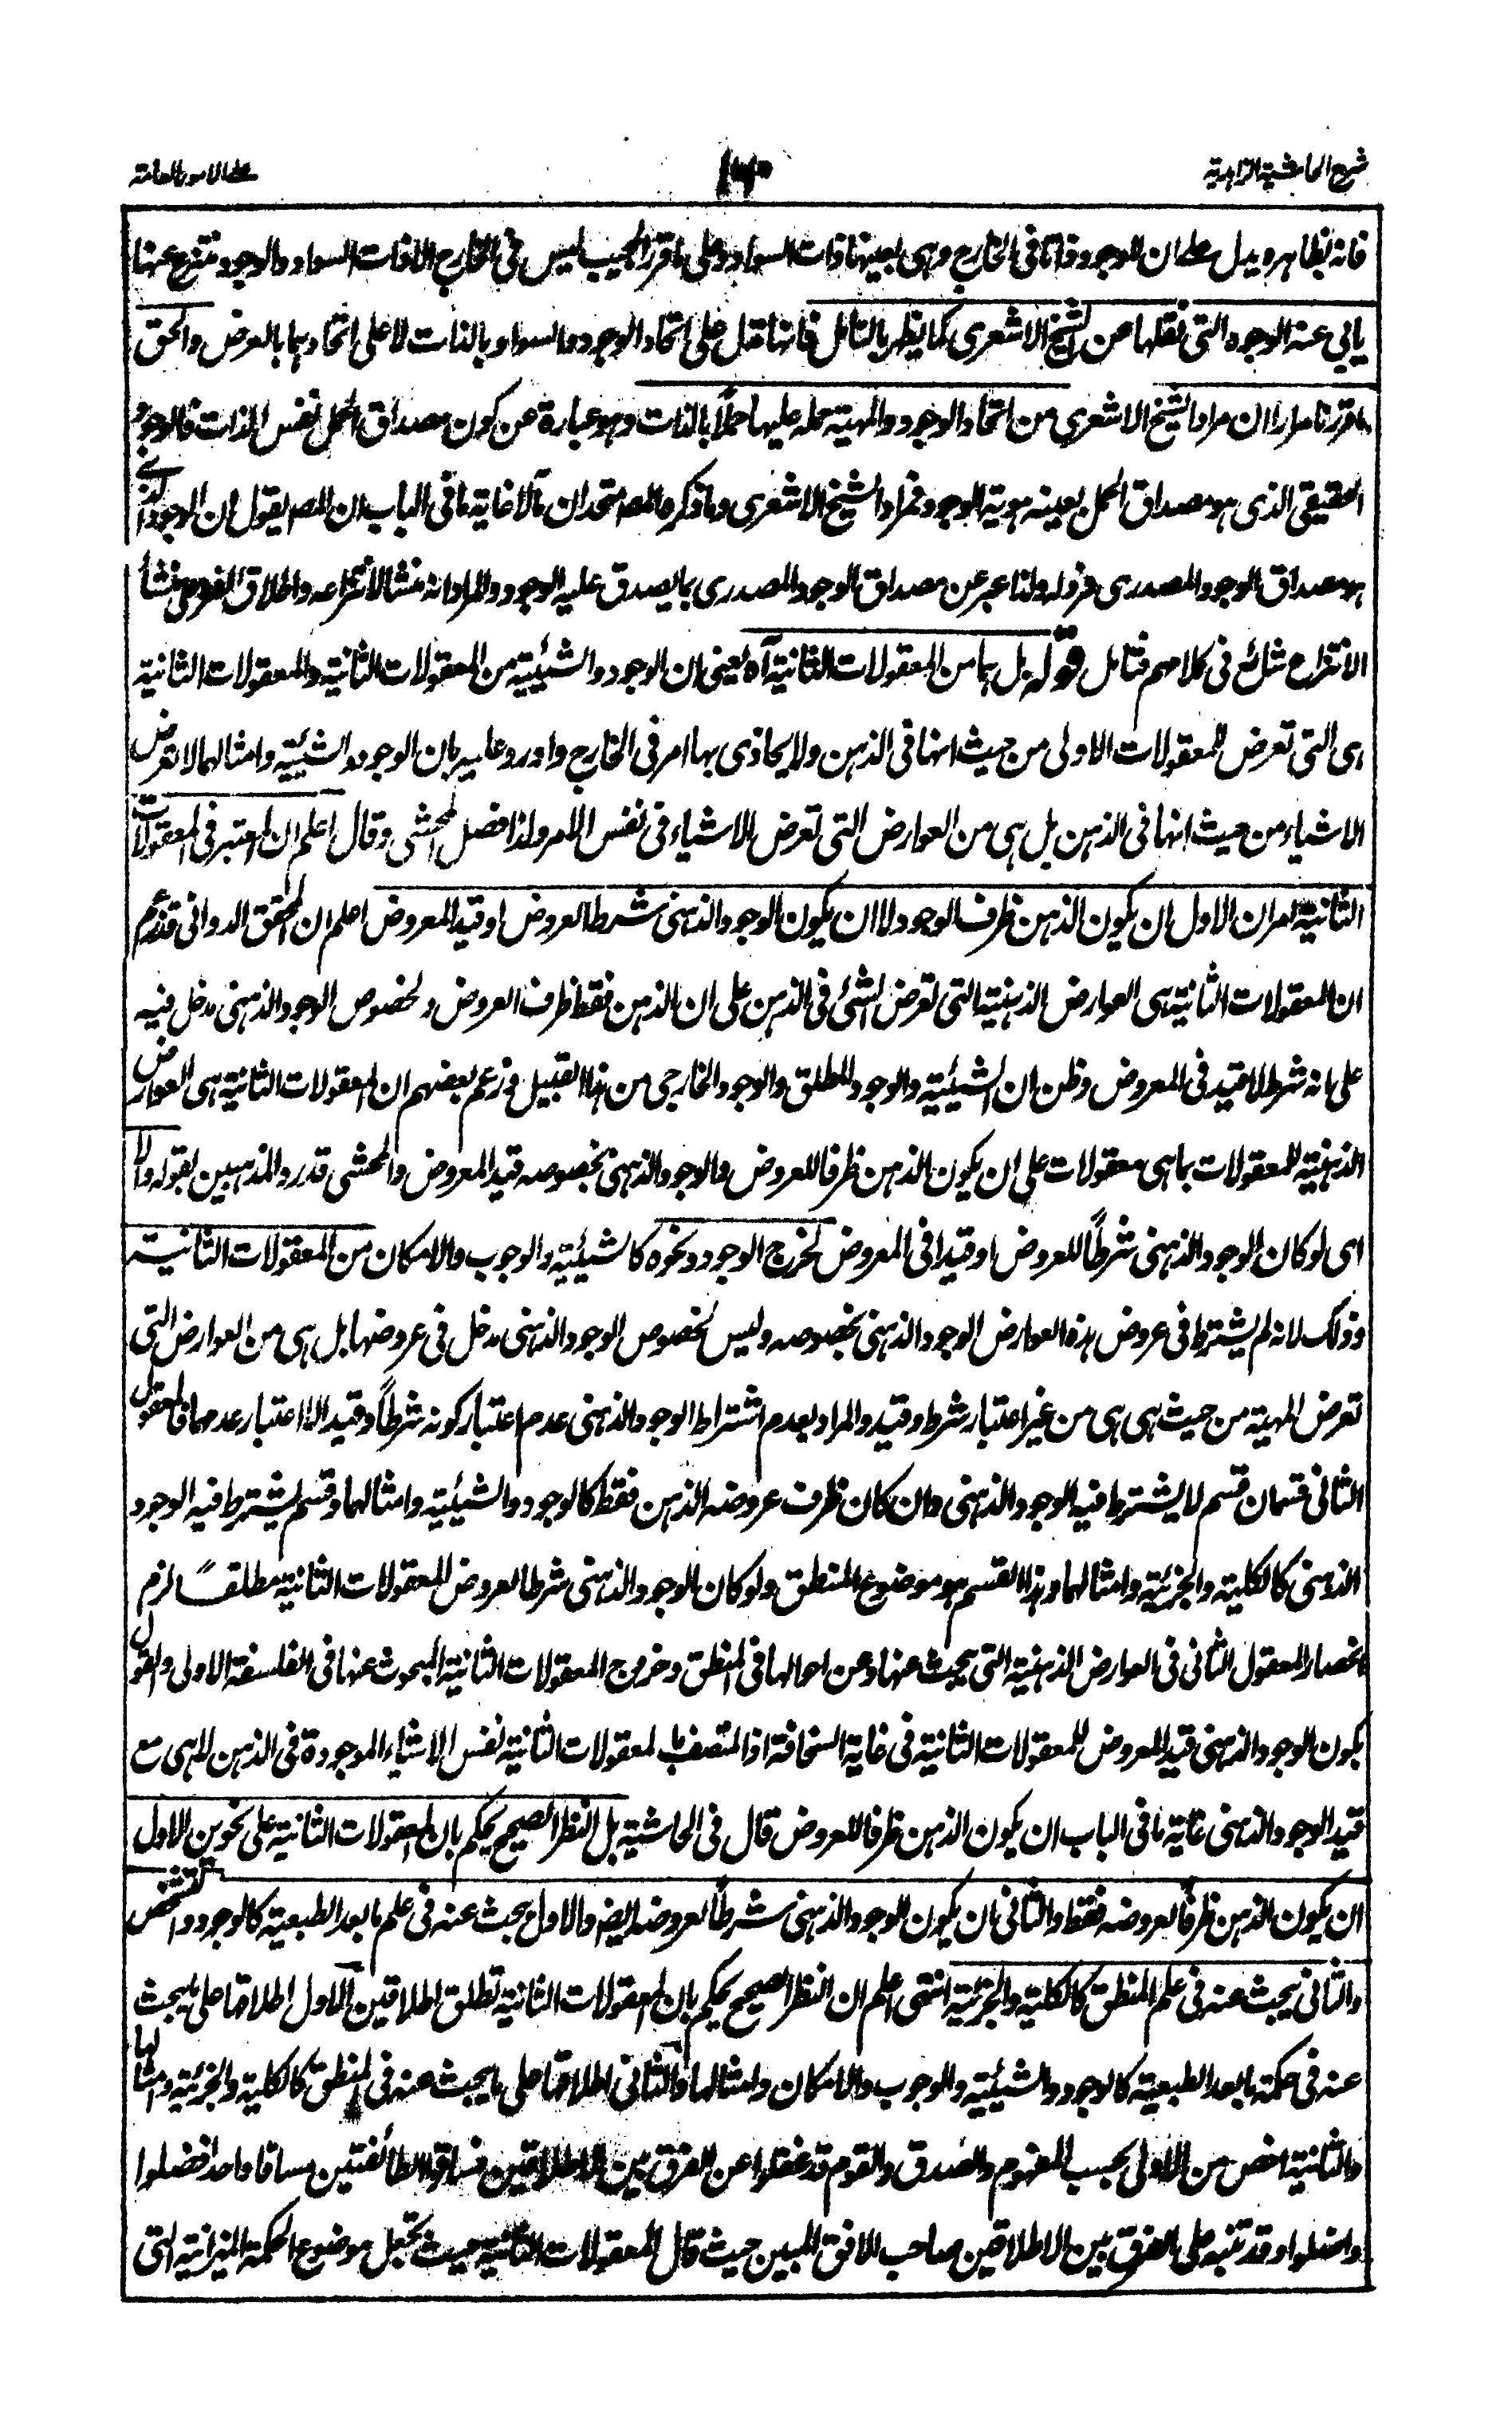 شرح الحاشية الزاهدية
على الامور العامة
فانه بظاهره يدل على ان للوجود ذاتا فى الخارج وهى بعينها ذات السواد وعلى ما قرر المجيب ليس فى الخارج الا ذات السواد والوجود منتزع عنها
يابى عنه الوجوه التى نقلها عن الشيخ الاشعرى كما يظهر بالتامل فانها تدل على اتحاد الوجود والسواد بالذات لا على اتحادهما بالعرض والحق
ما قررنا مرارا ان مراد الشيخ الاشعرى من اتحاد الوجود والمهية حمله عليها حملًا بالذات وهو عبارة عن كون مصداق الحمل نفس الذات فالوجود
الحقيقى الذى هو مصداق الحمل بعينه هوية الوجود فمراد الشيخ الاشعرى وما ذكره المصـ متحدان مآلا غاية ما فى الباب ان المصـ يقول ان الوجود الذى
هو مصداق الوجود المصدرى فرد له ولذا عبر عن مصداق الوجود المصدرى بما يصدق عليه الوجود والمراد انه منشا لانتزاعه واطلاق الفرد على منشأ
الانتزاع شائع فى كلامهم فتامل قوله بل هما من المعقولات الثانية آه يعنى ان الوجود والشيئية من المعقولات الثانية والمعقولات الثانية
هى التى تعرض للمعقولات الاولى من حيث انها فى الذهن ولا يحاذى بها امر فى الخارج واورد عليه بان الوجود والشيئية وامثالهما لا تعرض
الاشياء من حيث انها فى الذهن بل هى من العوارض التى تعرض للاشياء فى نفس الامر ولذا فصل المحشى وقال اعلم ان المعتبر فى المعقولات
الثانية امران الاول ان يكون الذهن ظرف الوجود لا ان يكون الوجود الذهنى شرط العروض او قيد المعروض اعلم ان المحقق الدوانى قد زعم
ان المعقولات الثانية هى العوارض الذهنية التى تعرض الشئ فى الذهن على ان الذهن فقط ظرف العروض ولخصوص الوجود الذهنى مدخل فيه
على انه شرط لا قيد فى المعروض وظن ان الشيئية والوجود المطلق والوجود الخارجى من هذا القبيل وزعم بعضهم ان المعقولات الثانية هى العوارض
الذهنية للمعقولات بما هى معقولات على ان يكون الذهن ظرفا للعروض والوجود الذهنى بخصوصه قيد المعروض والمحشى قد رد المذهبين بقوله والا
اى لو كان الوجود الذهنى شرطًا للعروض او قيدا فى المعروض لخرج الوجود ونحوه كالشيئية والوجوب والامكان من المعقولات الثانية
وذلك لانه لم يشترط فى عروض هذه العوارض الوجود الذهنى بخصوصه وليس لخصوص الوجود الذهنى مدخل فى عروضها بل هى من العوارض التى
تعرض المهية من حيث هى هى من غير اعتبار شرط وقيد والمراد بعدم اشتراط الوجود الذهنى عدم اعتبار كونه شرطًا وقيدا لا اعتبار عدمهما فالمعقول
الثانى قسمان قسم لا يشترط فيه الوجود الذهنى وان كان ظرف عروضه الذهن فقط كالوجود والشيئية وامثالهما وقسم يشترط فيه الوجود
الذهنى كالكلية والجزئية وامثالهما وهذا القسم هو موضوع المنطق ولو كان الوجود الذهنى شرطا لعروض المعقولات الثانية مطلقًا لزم
انحصار المعقول الثانى فى العوارض الذهنية التى يبحث عنها وعن احوالها فى المنطق وخروج المعقولات الثانية المبحوث عنها فى الفلسفة الاولى والقول
بكون الوجود الذهنى قيد المعروض للمعقولات الثانية فى غاية السخافة اذ المتصف بالمعقولات الثانية نفس الاشياء الموجودة فى الذهن لا هى مع
قيد الوجود الذهنى غاية ما فى الباب ان يكون الذهن ظرفا للعروض قال فى الحاشية بل النظر الصحيح يحكم بان المعقولات الثانية على نحوين الاول
ان يكون الذهن ظرفًا لعروضه فقط والثانى ان يكون الوجود الذهنى شرطًا لعروضه ايضا والاول يبحث عنه فى علم ما بعد الطبعية كالوجود والتشخص
والثانى يبحث عنه فى علم المنطق كالكلية والجزئية انتهى اعلم ان النظر الصحيح يحكم بان المعقولات الثانية تطلق اطلاقين الاول اطلاقها على ما يبحث
عنه فى حكمة ما بعد الطبعية كالوجود والشيئية والوجوب والامكان وامثالها والثانى اطلاقها على ما يبحث عنه فى المنطق كالكلية والجزئية وامثالها
والثانية اخص من الاولى بحسب المفهوم والصدق والقوم قد غفلوا عن الفرق بين الاطلاقين فساقوا الطائفتين مساقا واحدا فضلوا
واضلوا وقد تنبه على الفرق بين الاطلاقين صاحب الافق المبين حيث قال المعقولات الثانية حيث تجعل موضوع الحكمة الميزانية التى